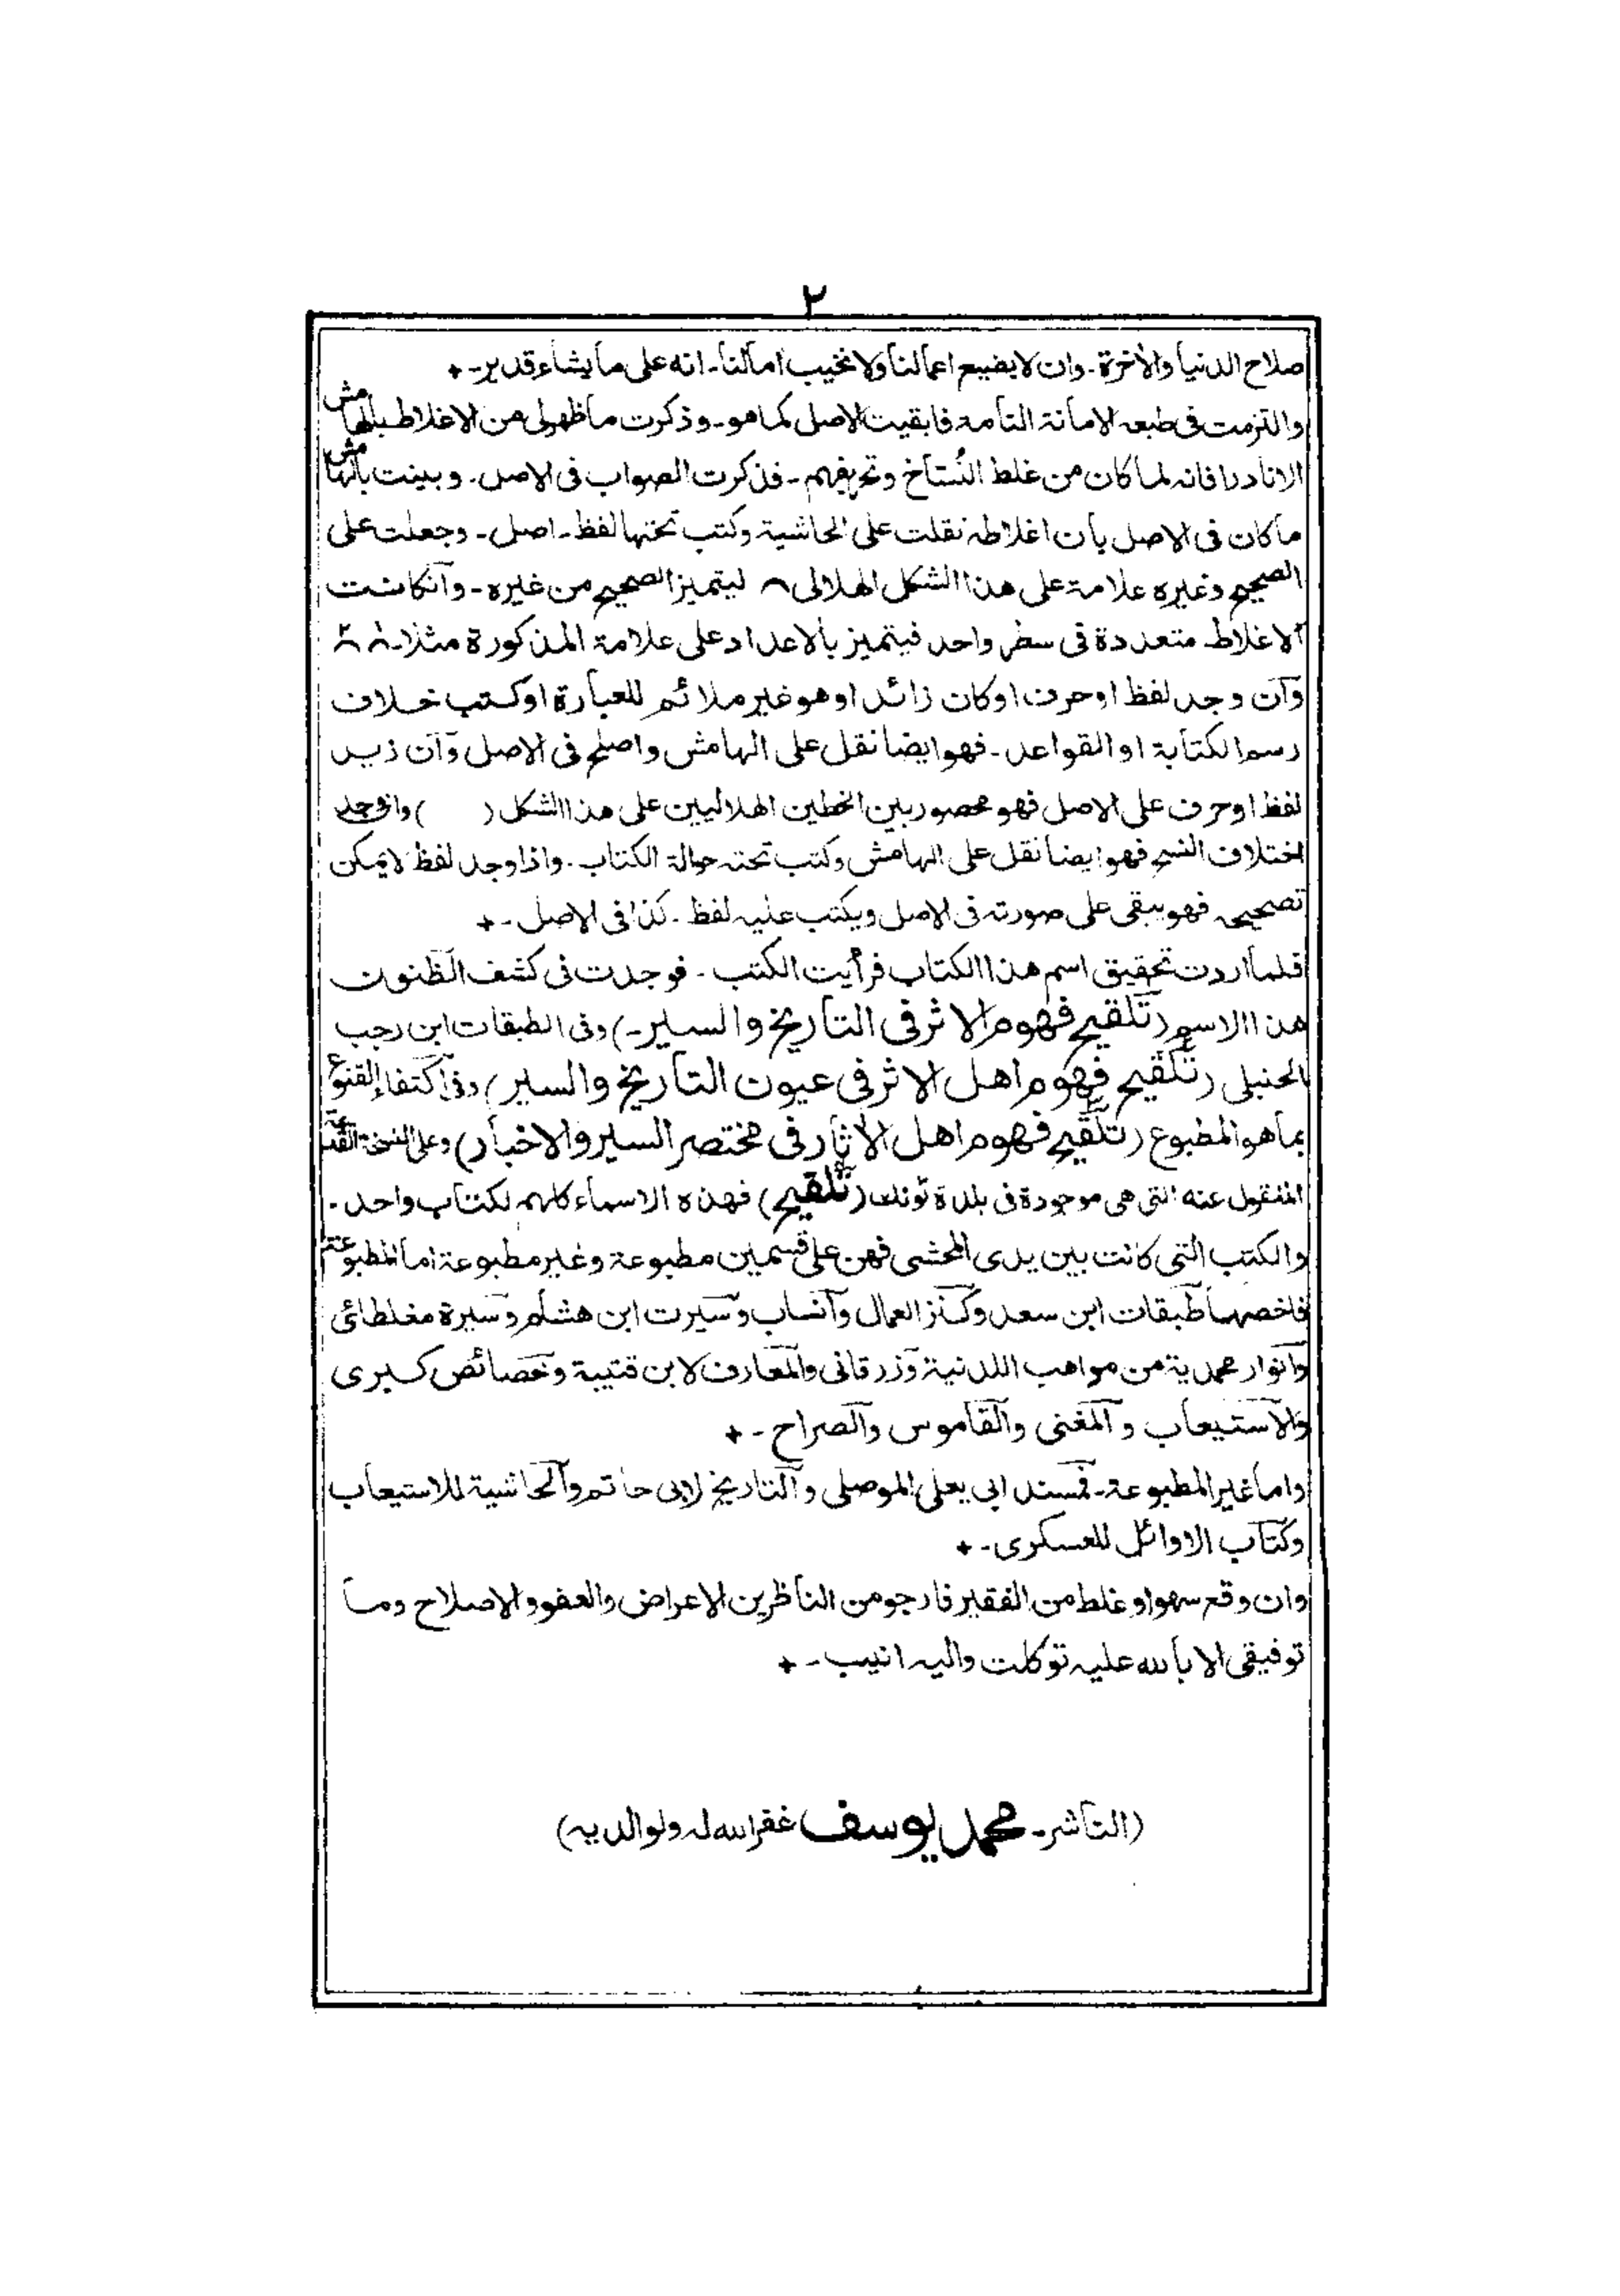 ٢
صلاح الدنيا والأخرة ـ وان لا يضيع اعمالنا ولا نخيب امالنا ـ انه على ما يشاء قدير ـ +
والتزمت فى طبعه الامانة التامة فابقيت الاصل كما هو ـ وذكرت ما ظهر لى من الاغلاط بالهامش
الا نادرا فانه لما كان من غلط النُسّاخ وتحريفهم ـ فذكرت الصواب فى الاصل ـ وبينت بالهامش
ما كان فى الاصل بأن اغلاطه نقلت على الحاشية وكتب تحتها لفظ ـ اصل ـ وجعلت على
الصحيح وغيره علامة على هذا الشكل الهلالى ؍ ليتميز الصحيح من غيره ـ وان كانت
الاغلاط متعددة فى سطر واحد فيتميز بالاعداد على علامة المذكورة مثلا ـ
وان وجد لفظ او حرف او كان زائد او هو غير ملائم للعبارة او كتب خلاف
رسم الكتابة او القواعد ـ فهو ايضا نقل على الهامش واصلح فى الاصل وان زيد
لفظ او حرف على الاصل فهو محصور بين الخطين الهلاليين على هذا الشكل (       ) وان وجد
اختلاف النسخ فهو ايضا نقل على الهامش وكتب تحته حوالة الكتاب ـ واذا وجد لفظ لا يمكن
تصحيحه فهو يبقى على صورته فى الاصل ويكتب عليه لفظ ـ كذا فى الاصل ـ +
فلما اردت تحقيق اسم هذا الكتاب فرأيت الكتب ـ فوجدت فى كشف الظنون
هذا الاسم (تلقيح فهوم الاثر فى التاريخ والسير ـ) وفى الطبقات ابن رجب
الحنبلى (تلقيح فهوم اهل الاثر فى عيون التاريخ والسير) وفى اكتفاء القنوع
بما هو المطبوع (تلقيح فهوم اهل الاثار فى مختصر السير والاخبار) وعلى النسخة
المنقول عنه التى هى موجودة فى بلدة ٹونك (تلقيح) فهذه الاسماء كلهم لكتاب واحد ـ
والكتب التى كانت بين يدى المحشى فهن على قسمين مطبوعة وغير مطبوعة اما المطبوعة
فاخصها طبقات ابن سعد وكنز العمال وانساب وسيرت ابن هشام وسيرة مغلطائى
وانوار محمدية من مواهب اللدنية وزرقانى والمعارف لابن قتيبة وخصائص كبرى
والاستيعاب والمغنى والقاموس والصراح ـ +
واما غير المطبوعة ـ فمسند ابى يعلى الموصلى والتاريخ لابى حاتم والحاشية للاستيعاب
وكتاب الاوائل للعسكرى ـ +
وان وقع سهوا و غلط من الفقير فارجو من الناظرين الاعراض والعفو والاصلاح وما
توفيقى الا بالله عليه توكلت واليه انيب ـ +
(الناشر ـ محمد يوسف غفر الله له ولوالديه)